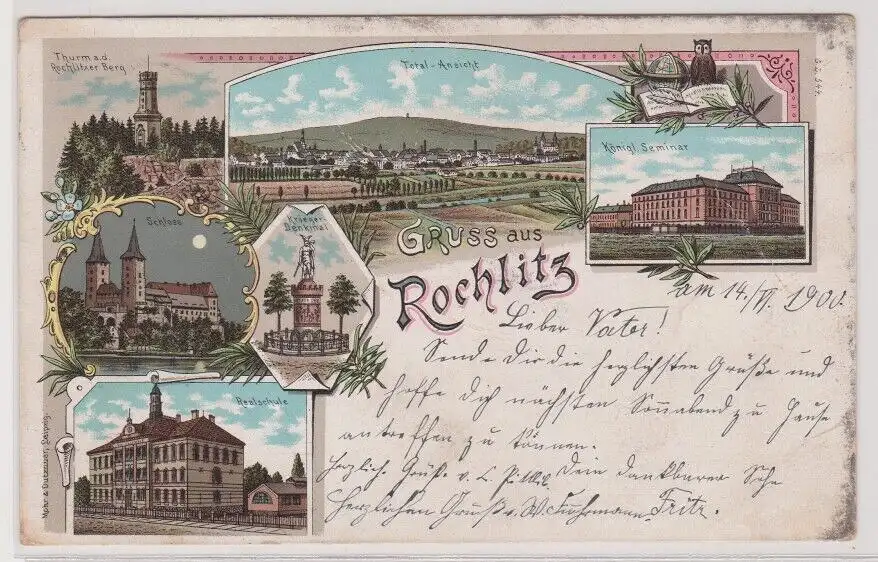 Thurm a.d.
Rochlitzer Berg
Total-Ansicht
Königl. Seminar
Schloss
Krieger-
Denkmal
Realschule
GRUSS aus
Rochlitz
Mohr & Dutzauer, Leipzig.
am 14./VI. 1900.
Lieber Vater!
Sende Dir die herzlichsten Grüße und
hoffe Dich nächsten Sonnabend zu Hause
antreffen zu können.
Dein dankbarer Sohn
Fritz.
Herzlich. Gruß. v.
Herzlichen Gruß v. W. Fuhrmann